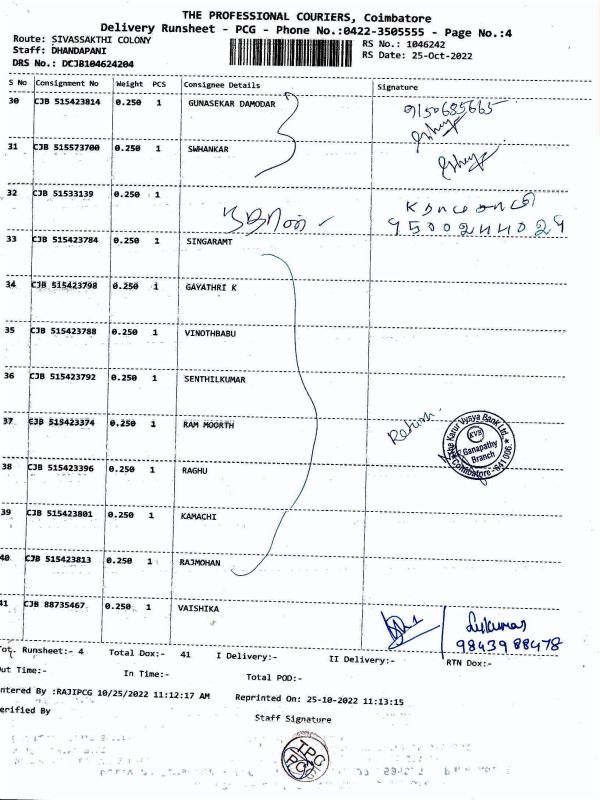 THE PROFESSIONAL COURIERS, Coimbatore
Delivery Runsheet - PCG - Phone No.:0422-3505555 - Page No.:4
Route: SIVASSAKTHI COLONY
Staff: DHANDAPANI
DRS No.: DCJB104624204
RS No.: 1046242
RS Date: 25-Oct-2022
S No Consignment No Weight PCS Consignee Details Signature
30 CJB 515423814 0.250 1 GUNASEKAR DAMODAR 9150685665
31 CJB 515573700 0.250 1 SWHANKAR
32 CJB 51533139 0.250 1
9500244029
33 CJB 515423784 0.250 1 SINGARAMT
34 CJB 515423798 0.250 1 GAYATHRI K
35 CJB 515423788 0.250 1 VINOTHBABU
36 CJB 515423792 0.250 1 SENTHILKUMAR
37 CJB 515423374 0.250 1 RAM MOORTH Return
The Karur Vysya Bank Ltd.
KVB
Ganapathy
Branch
Coimbatore-641 006.
38 CJB 515423396 0.250 1 RAGHU
39 CJB 515423801 0.250 1 KAMACHI
40 CJB 515423813 0.250 1 RAJMOHAN
41 CJB 88735467 0.250 1 VAISHIKA
9843988478
Tot. Runsheet:- 4 Total Dox:- 41 I Delivery:- II Delivery:- RTN Dox:-
Out Time:- In Time:- Total POD:-
ntered By :RAJIPCG 10/25/2022 11:12:17 AM Reprinted On: 25-10-2022 11:13:15
erified By Staff Signature
TPC